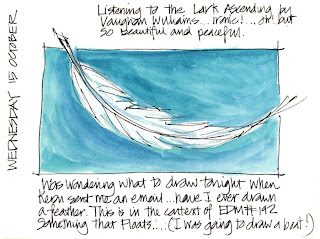 WEDNESDAY 15 OCTOBER
Listening to the Lark Ascending by
Vaughan Williams... ironic!... but
so beautiful and peaceful.
Was wondering what to draw tonight when
sent me an email... have I ever drawn
a feather. This is in the context of EDM # 192
Something that Floats.... (I was going to draw a boat!)